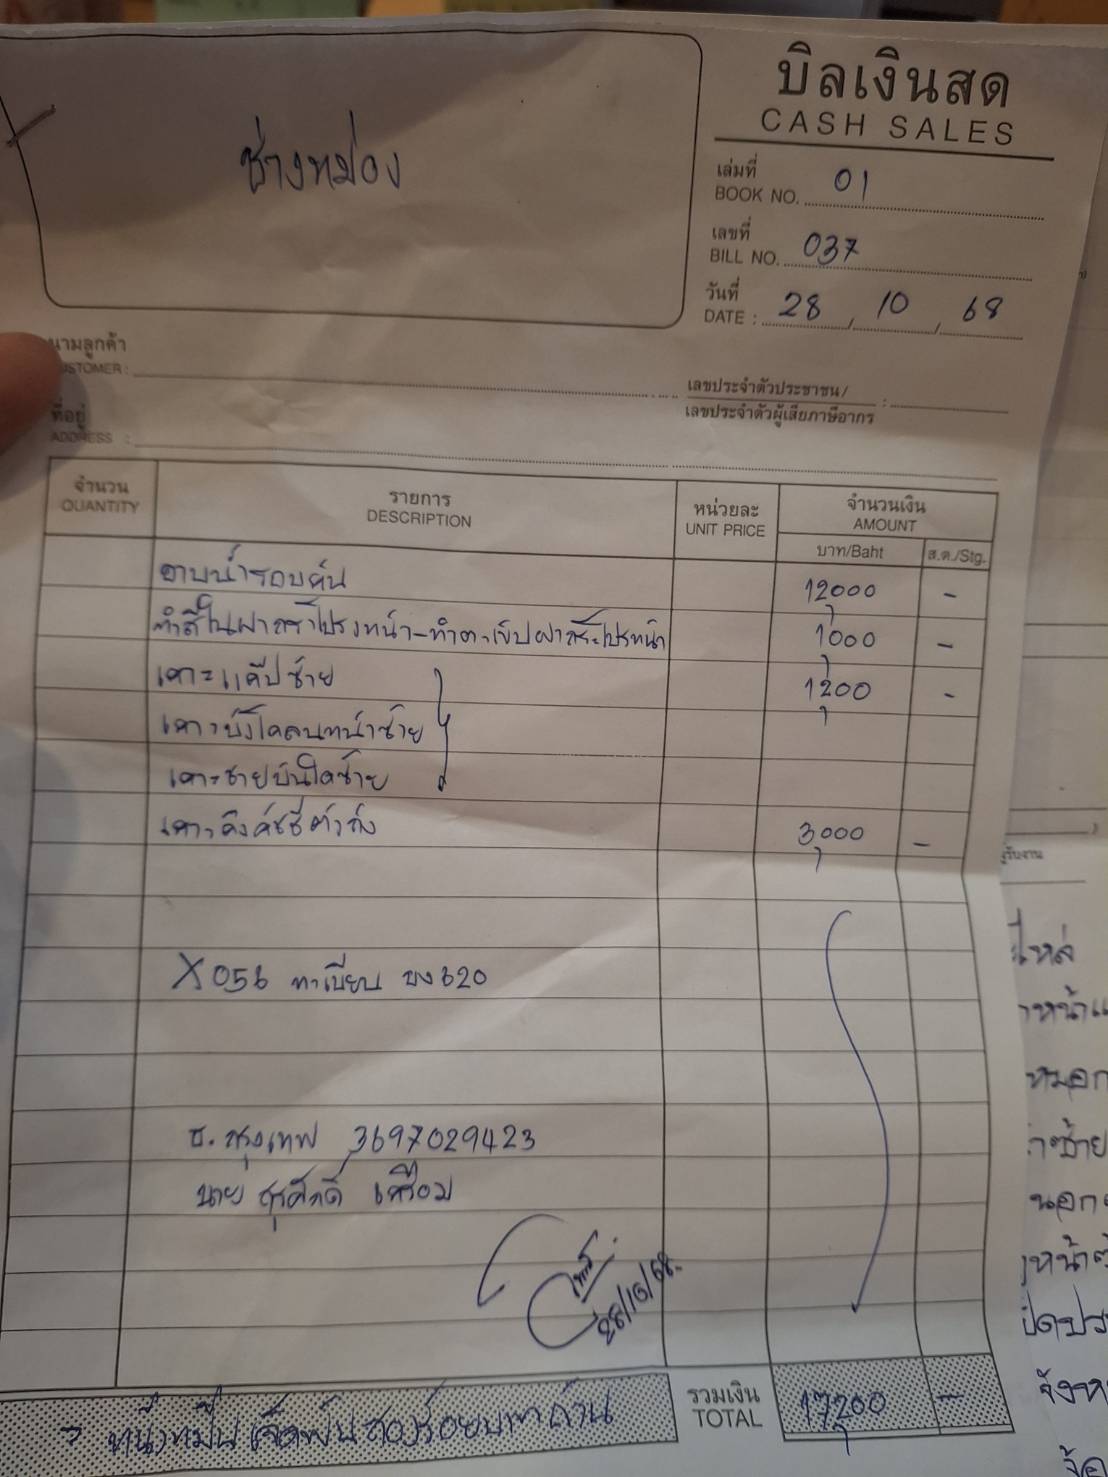 บิลเงินสด
CASH SALES
ช่างหม่อง
เล่มที่
BOOK NO. 01
เลขที่
BILL NO. 037
วันที่
DATE : 28 / 10 / 68
นามลูกค้า
USTOMER :
ที่อยู่
ADDRESS :
เลขประจำตัวประชาชน/
เลขประจำตัวผู้เสียภาษีอากร :
จำนวน QUANTITY รายการ DESCRIPTION หน่วยละ UNIT PRICE จำนวนเงิน AMOUNT
บาท/Baht ส.ต./Stg.
อาบน้ำรอบคัน 12,000 -
ทำสีในฝากระโปรงหน้า-ทำตะเข็บฝากระโปรงหน้า 1,000 -
เคาะแค๊ปซ้าย 1,200 -
เคาะบังโคลนหน้าซ้าย
เคาะชายบันไดซ้าย
เคาะคัสซีตัวถัง 3,000 -
X056 ทะเบียน บง620
ธ. กรุงเทพ 3697029423
นาย สุรศักดิ์
28/10/68
รวมเงิน
TOTAL 17,200 -
หนึ่งหมื่นเจ็ดพันสองร้อยบาทถ้วน
รับงาน
หน้า
หมอก
ซ้าย
นอก